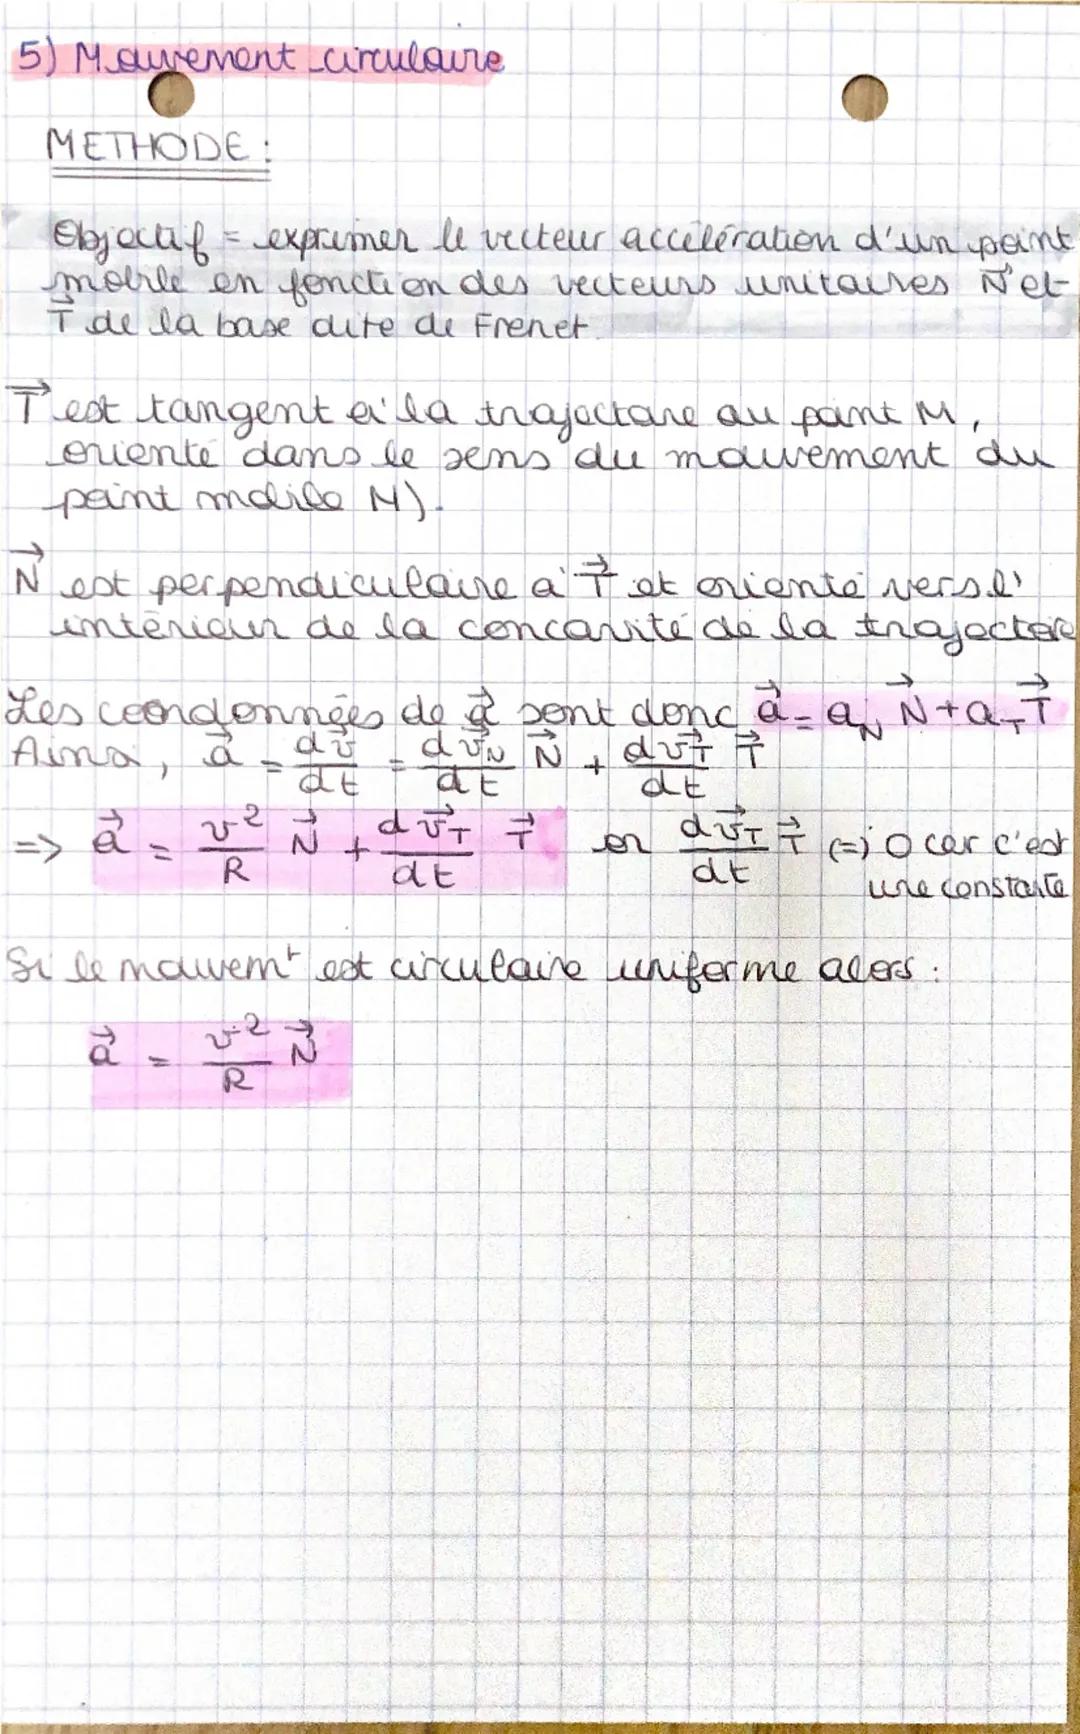 5) Mouvement circulaire
METHODE :
Objectif = exprimer le vecteur accélération d'un point
mobile en fonction des vecteurs unitaires N⃗ et
T⃗ de la base dite de Frenet
T⃗ est tangent à la trajectoire au point M,
orienté dans le sens du mouvement du
point mobile M).
N⃗ est perpendiculaire à T⃗ et orienté vers l'
intérieur de la concavité de la trajectoire
Les coordonnées de a⃗ sont donc a⃗ = a_N N⃗ + a_T T⃗
Ainsi, a⃗ = dv⃗/dt = dv⃗_N/dt N⃗ + dv⃗_T/dt T⃗
=> a⃗ = v²/R N⃗ + dv⃗_T/dt T⃗ or dv⃗_T/dt T⃗ (=) 0 car c'est
une constante
Si le mouvemt est circulaire uniforme alors :
a⃗ = v²/R N⃗